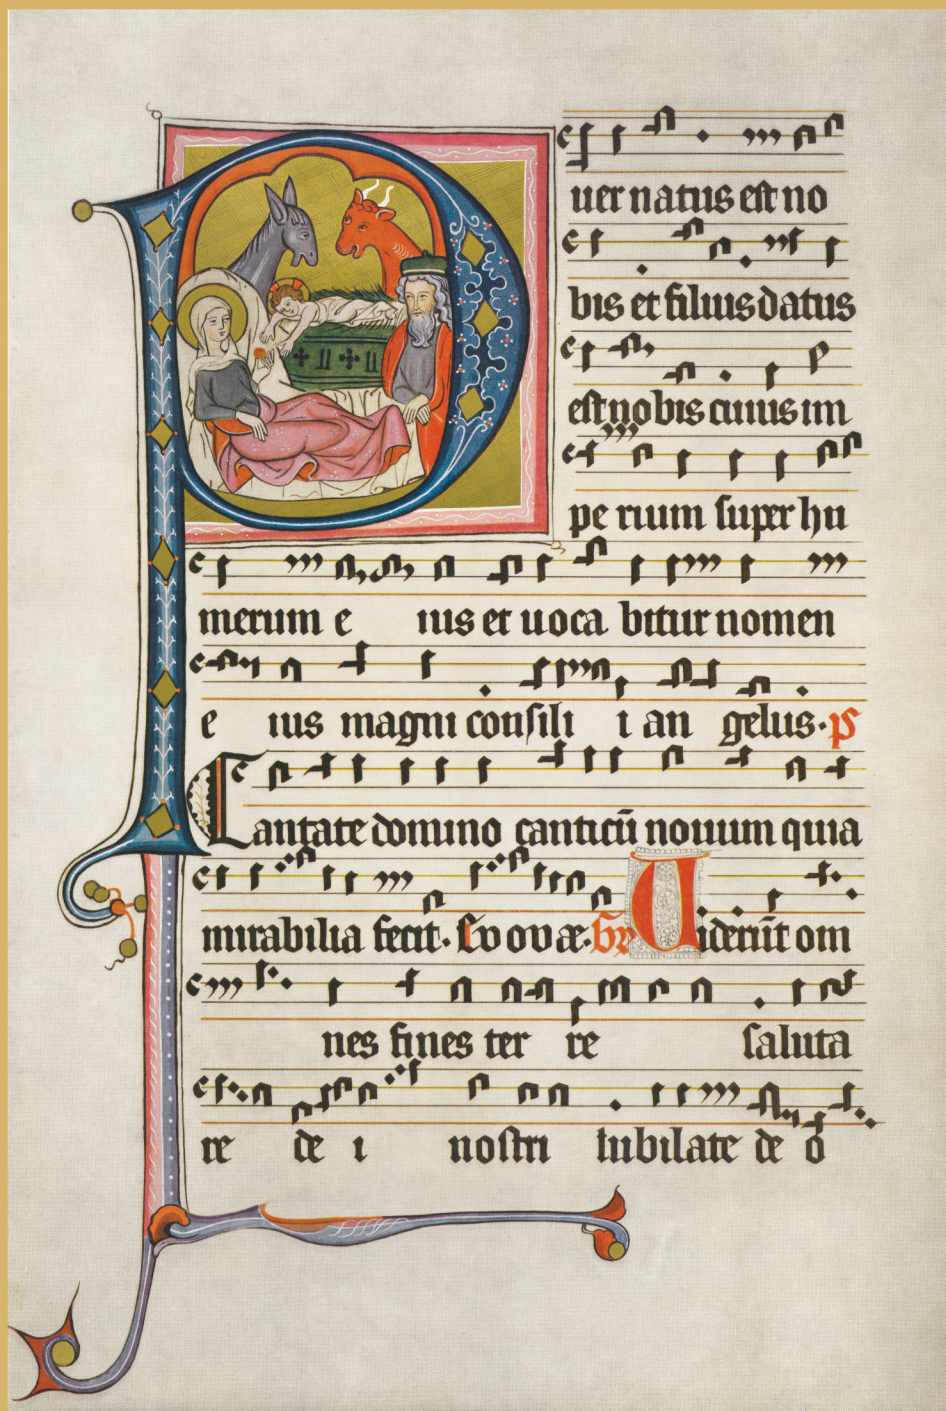 P
uer natus est no
bis et filius datus
est nobis cuius im
perium super hu
merum e ius et uoca bitur nomen
e ius magni consili i an gelus. ps
Cantate domino canticū nouum quia
mirabilia fecit. Euouae. Gr Uiderūt om
nes fines ter re saluta
re de i nostri Iubilate de o